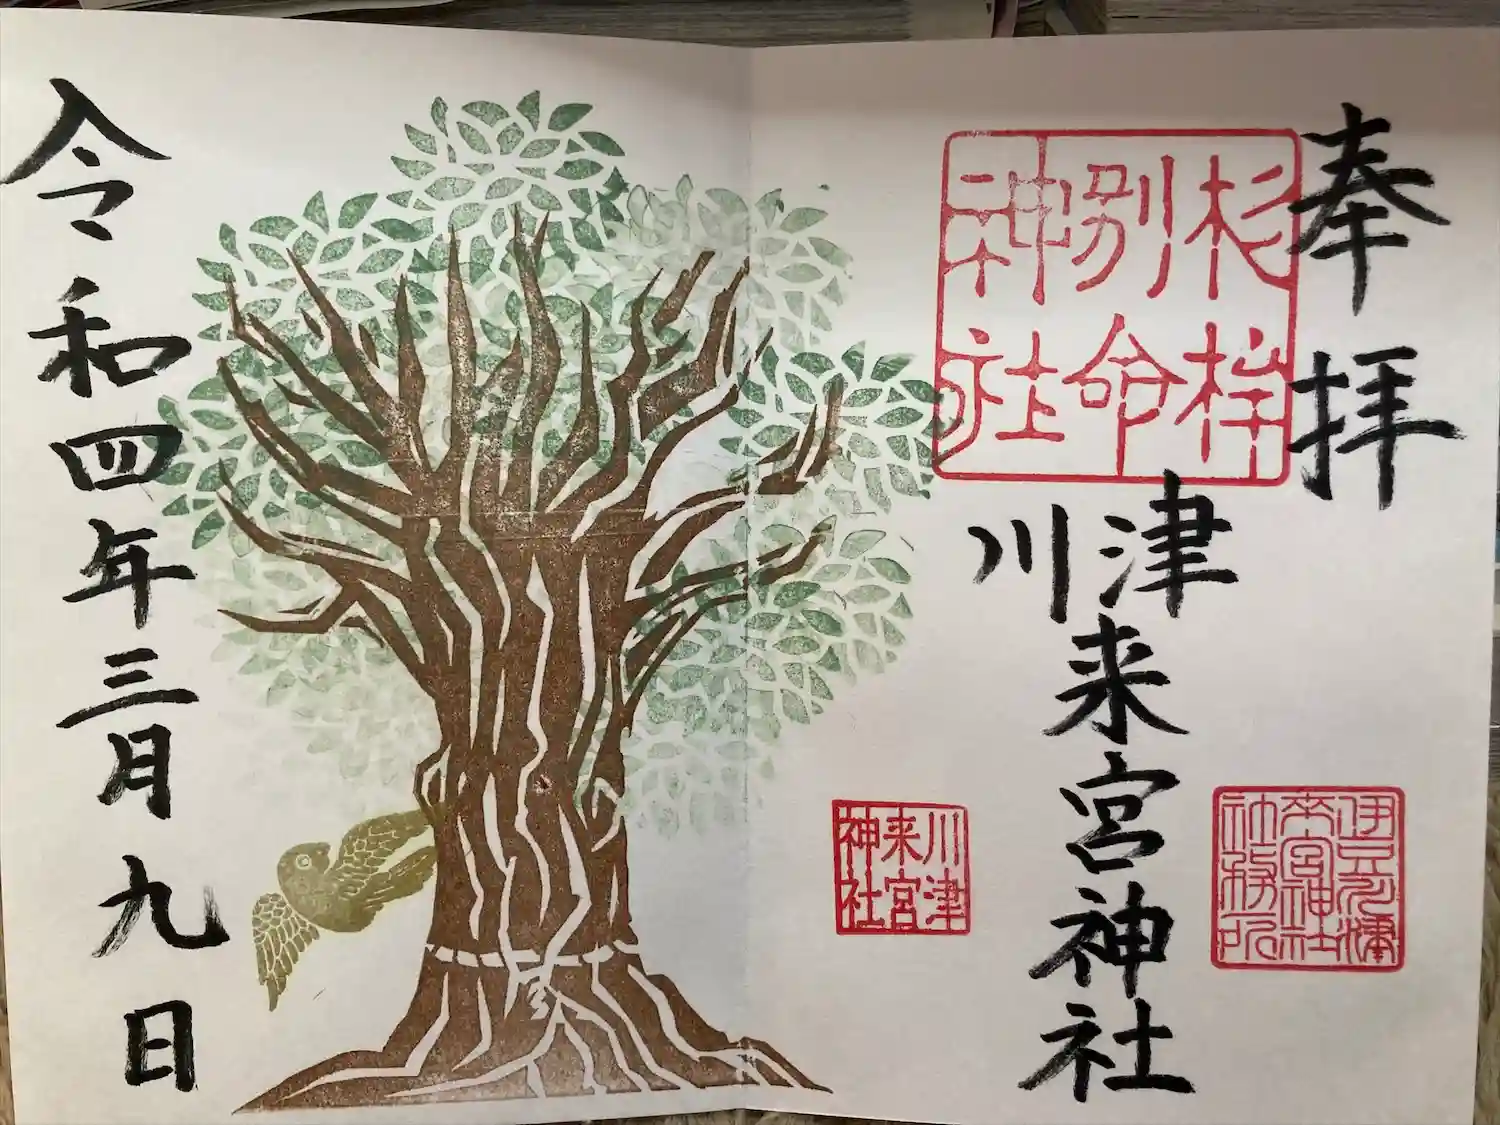 奉拝
杉桙
別命
神社
川津来宮神社
伊豆
来宮神社
社務所
川津
来宮
神社
令和四年三月九日